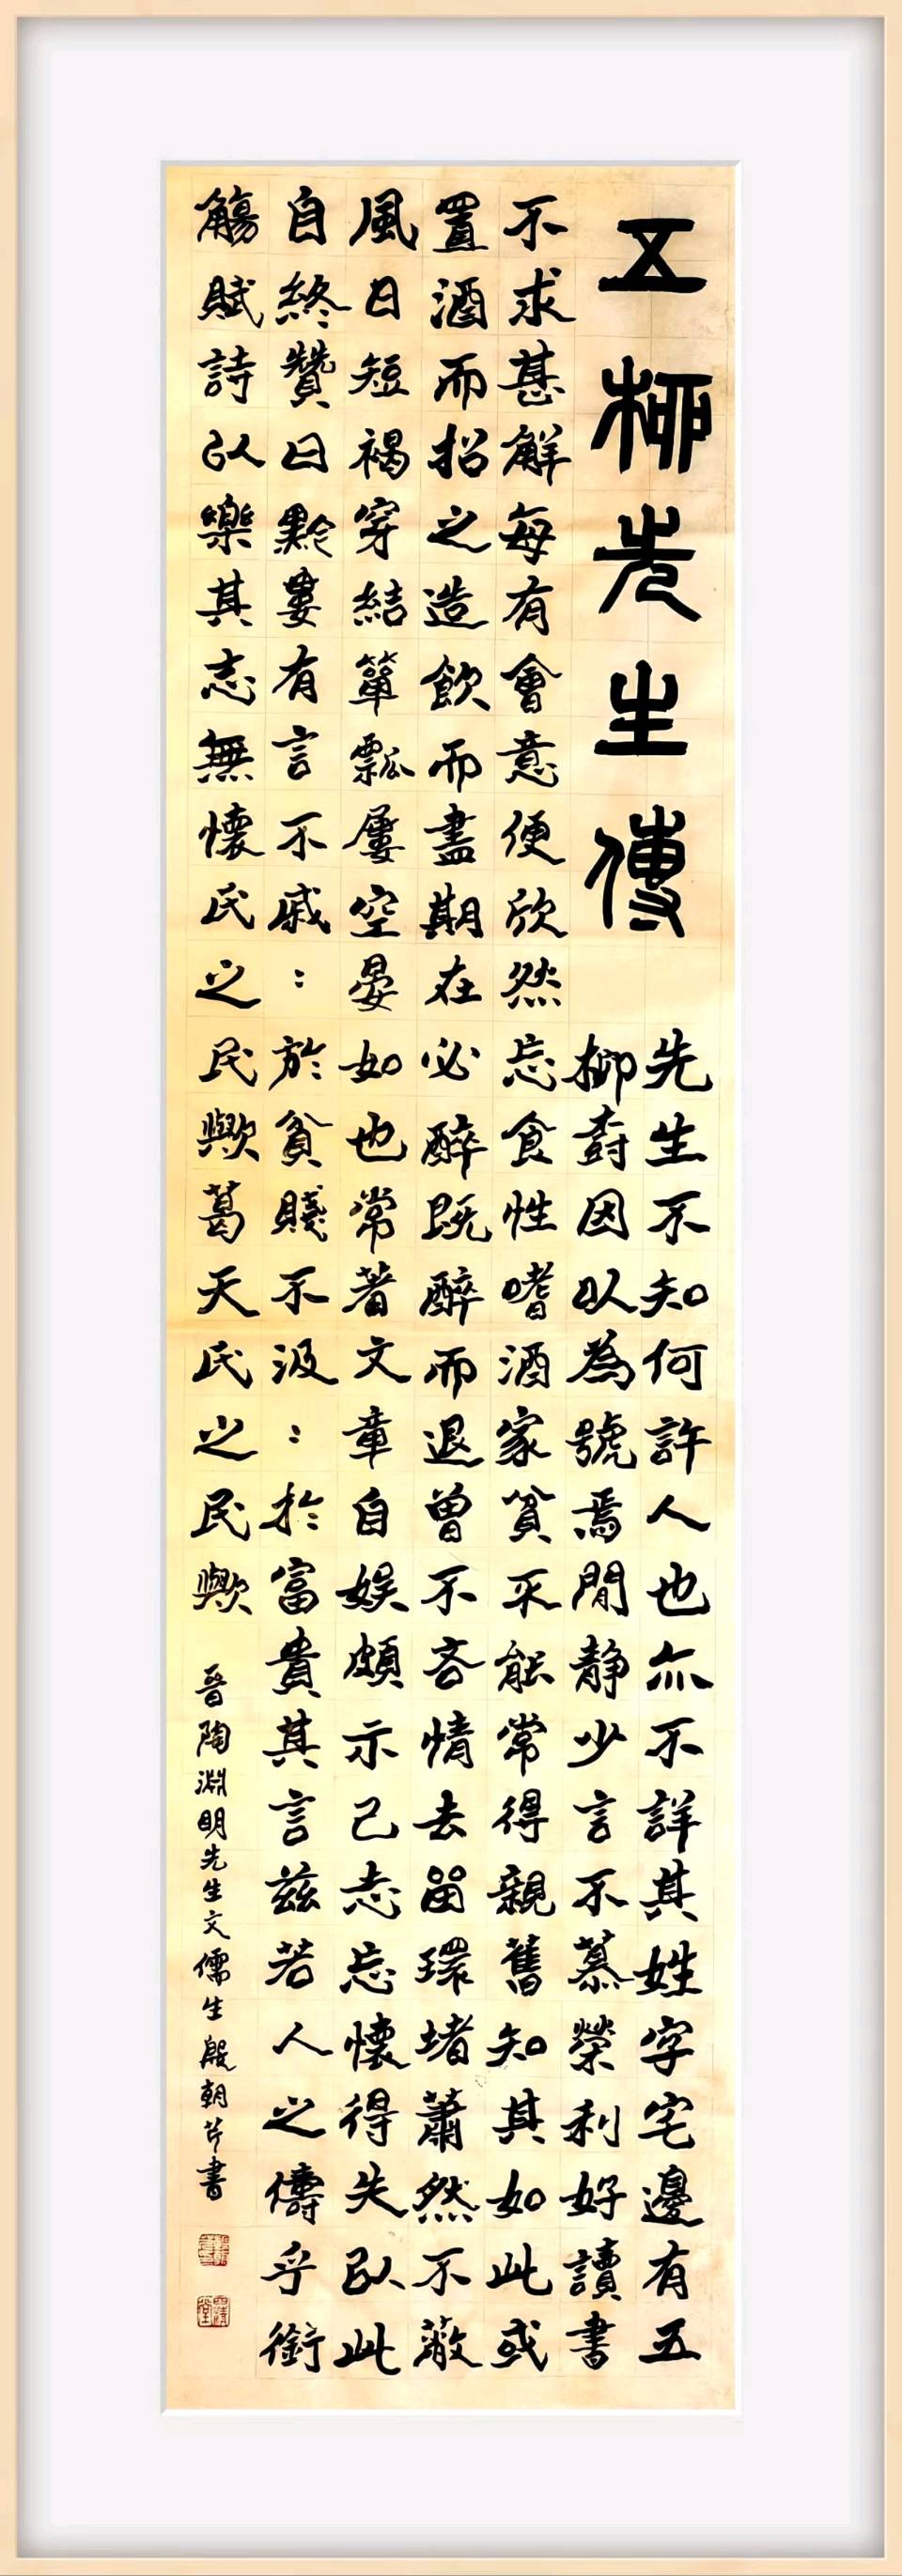 五柳先生傳
先生不知何許人也亦不詳其姓字宅邊有五
柳樹因以為號焉閒靜少言不慕榮利好讀書
不求甚解每有會意便欣然忘食性嗜酒家貧不能常得親舊知其如此或
置酒而招之造飲而盡期在必醉既醉而退曾不吝情去留環堵蕭然不蔽
風日短褐穿結簞瓢屢空晏如也常著文章自娛頗示己志忘懷得失以此
自終贊曰黔婁有言不戚：於貧賤不汲：於富貴其言茲若人之儔乎銜
觴賦詩以樂其志無懷氏之民歟葛天氏之民歟 晉陶淵明先生文儒生殷朝芹書